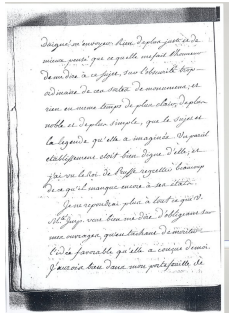 Daigné m'envoyer. Rien de plus juste ni de
mieux pensé que ce qu'elle me fait l'honneur
de me dire à ce sujet, sur l'obscurité trop
ordinaire de ces sortes de monumens, et
rien en même temps de plus clair, de plus
noble et de plus simple, que le sujet et
la legende qu'elle a imaginée. Un pareil
etablissement etoit bien digne d'elle, et
j'ai vu le Roi de Prusse regretter beaucoup
de ce qu'il manque encore à ses états.
Je ne repondrai plus à tout ce que V.
M. I. veut bien me dire d'obligeant sur
mes ouvrages, qu'en tachant de meriter
l'idée favorable qu'elle a conçue de moi.
J'aurois bien dans mon portefeuille de